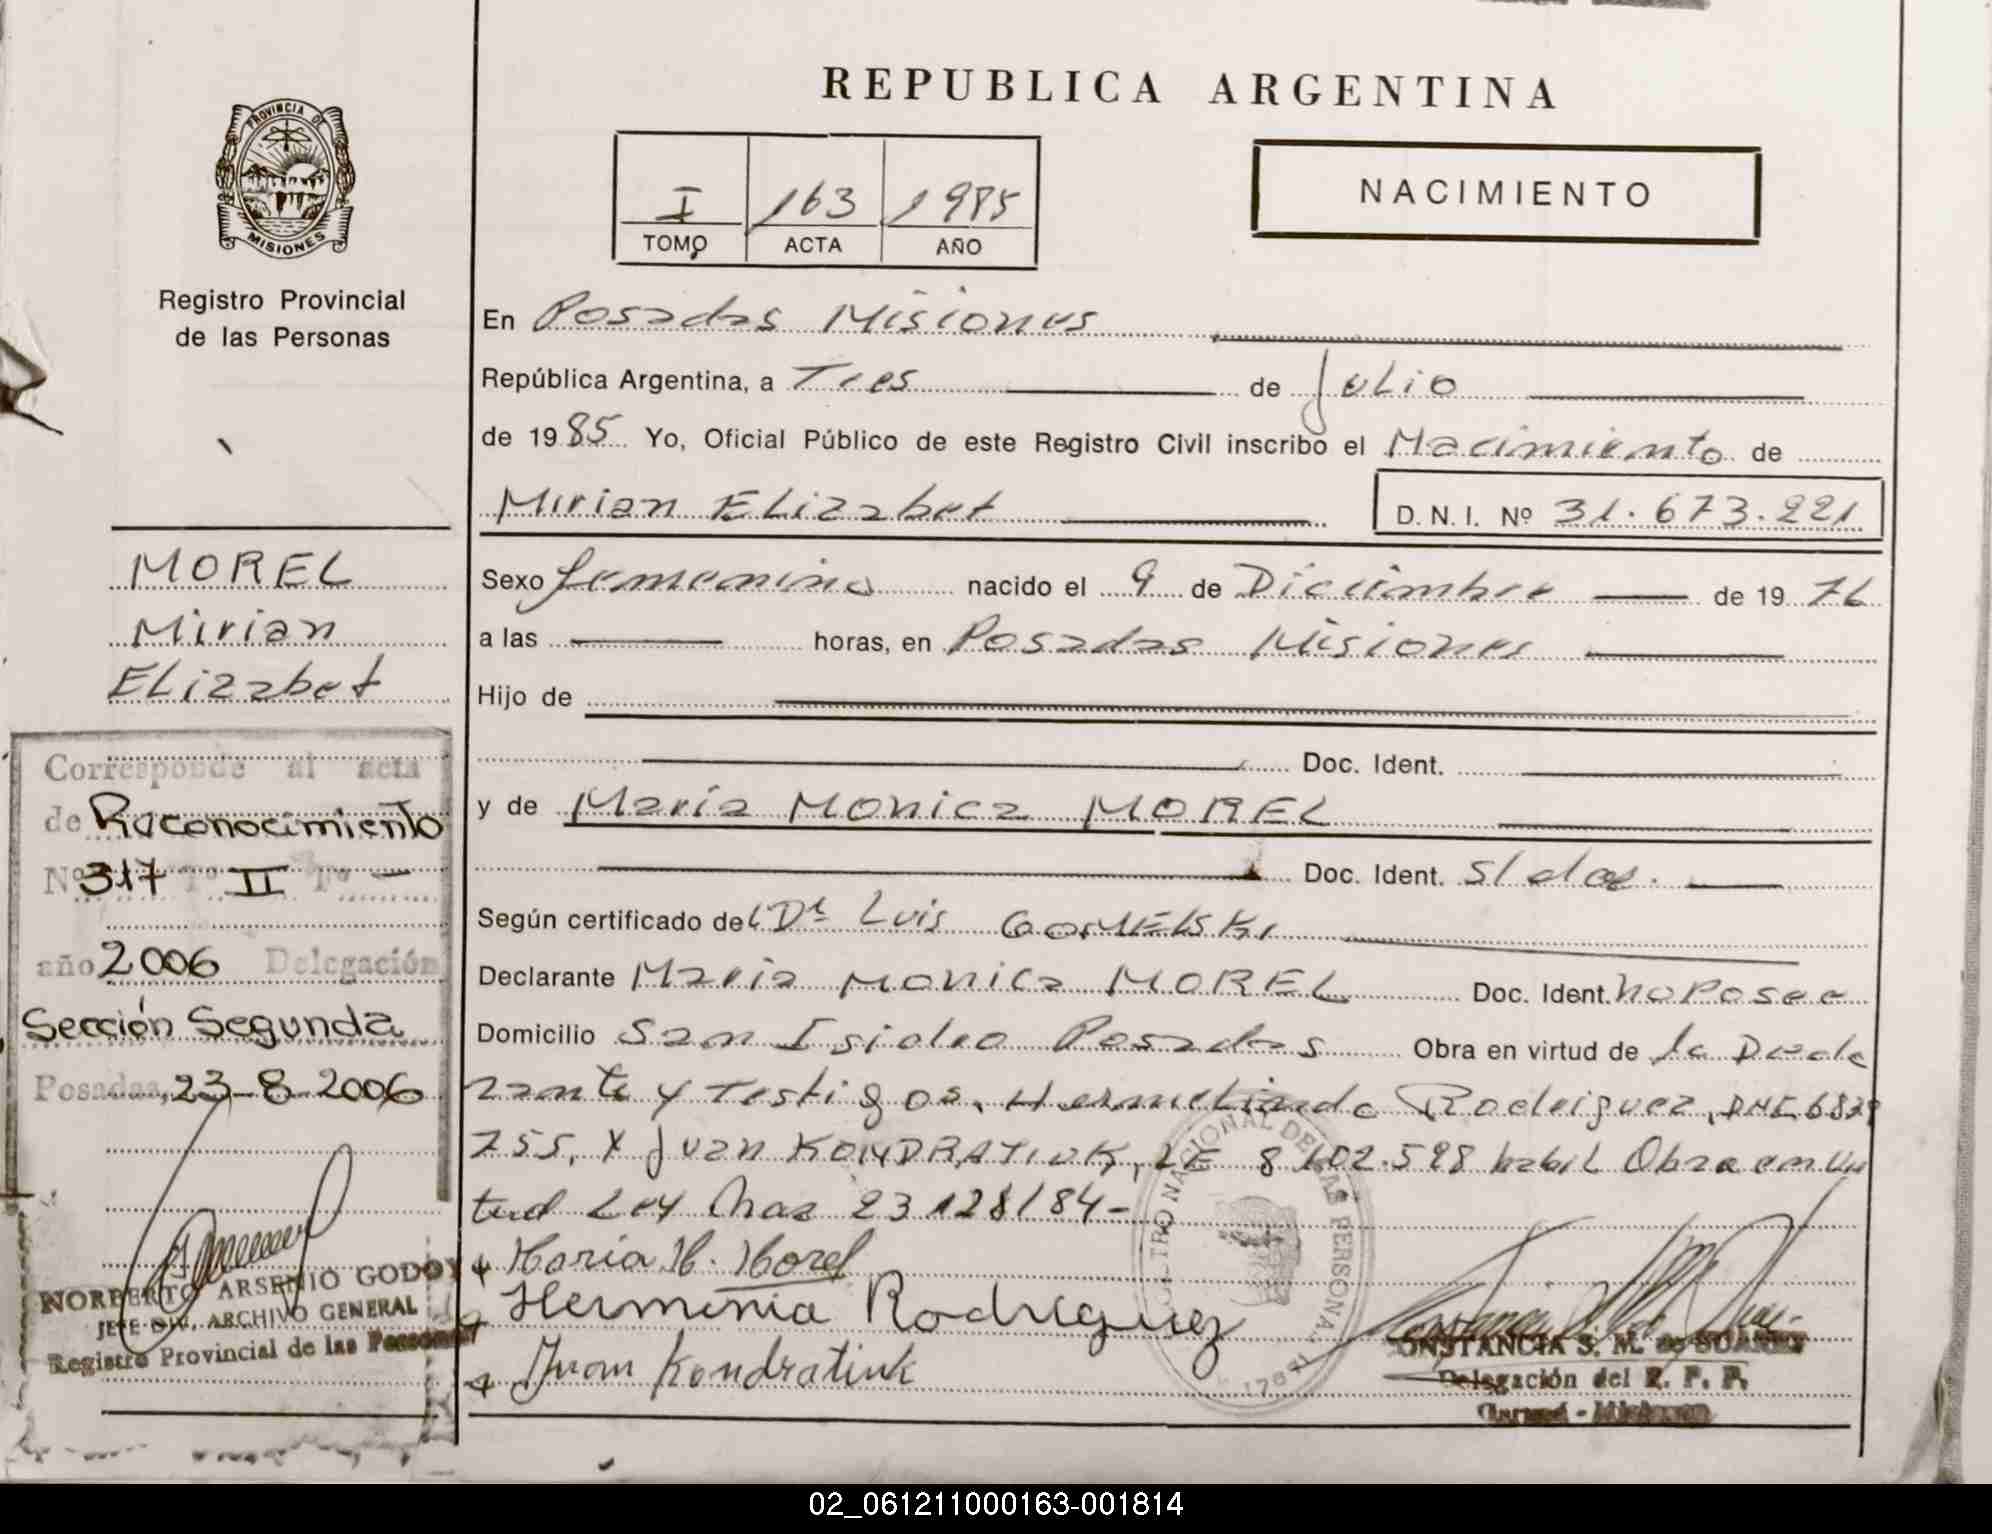 REPUBLICA ARGENTINA
PROVINCIA DE
MISIONES
Registro Provincial
de las Personas
I 163 1985
TOMO ACTA AÑO
NACIMIENTO
En Posadas Misiones
República Argentina, a Tres de Julio
de 1985 Yo, Oficial Público de este Registro Civil inscribo el Nacimiento de
Mirian Elizabet D.N.I. Nº 31.673.221
MOREL
Mirian
Elizabet
Sexo femenino nacido el 9 de Diciembre de 1976
a las horas, en Posadas Misiones
Hijo de
Doc. Ident.
y de Maria Monica MOREL
Doc. Ident. S/doc.
Según certificado del Dr Luis
Declarante Maria Monica MOREL Doc. Ident. no Posee
Domicilio San Isidro Posadas Obra en virtud de la Decla
rante y Testigos, Rodriguez, 6839
755, y Juan KONDRATIUK, LE 8 102.598 habil Obra en vir
tud Ley Nac 23128/84-
Maria M. Morel
Herminia Rodriguez
Juan Kondratiuk
Corresponde al acta
de Reconocimiento
Nº 317 Tº II Fº -
año 2006 Delegación
Sección Segunda
Posadas, 23-8-2006
NORBERTO ARSENIO GODOY
JEFE DIV. ARCHIVO GENERAL
Registro Provincial de las Personas
REGISTRO NACIONAL DE LAS PERSONAS
CONSTANCIA S. M. de SUAREZ
Delegación del R. P. P.
02_061211000163-001814